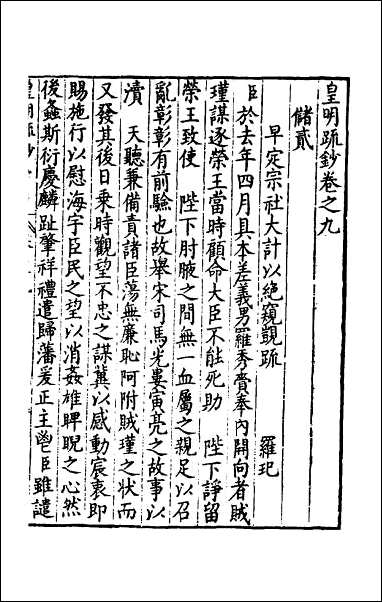 皇明疏鈔卷之九
儲貳
早定宗社大計以絕窺覬疏 羅玘
臣於去年四月具本差義男羅秀賫奉內開向者賊
瑾謀逐榮王當時顧命大臣不能死助 陛下諍留
榮王致使 陛下肘腋之間無一血屬之親足以召
亂彰彰有前驗也故舉宋司馬光婁寅亮之故事以
瀆 天聽兼備責諸臣蕩無廉恥阿附賊瑾之狀而
又發其後日乘時觀望不忠之謀冀以感動宸衷即
賜施行以慰海宇臣民之望以消姦雄睥睨之心然
後螽斯衍慶麟趾肇祥禮遣歸藩爰正主鬯臣雖譴